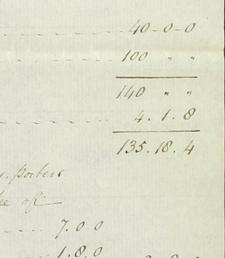 40-0-0
100 " "
140 " "
4.1.8
135.18.4
porters
of
7.0 0
1.8.0